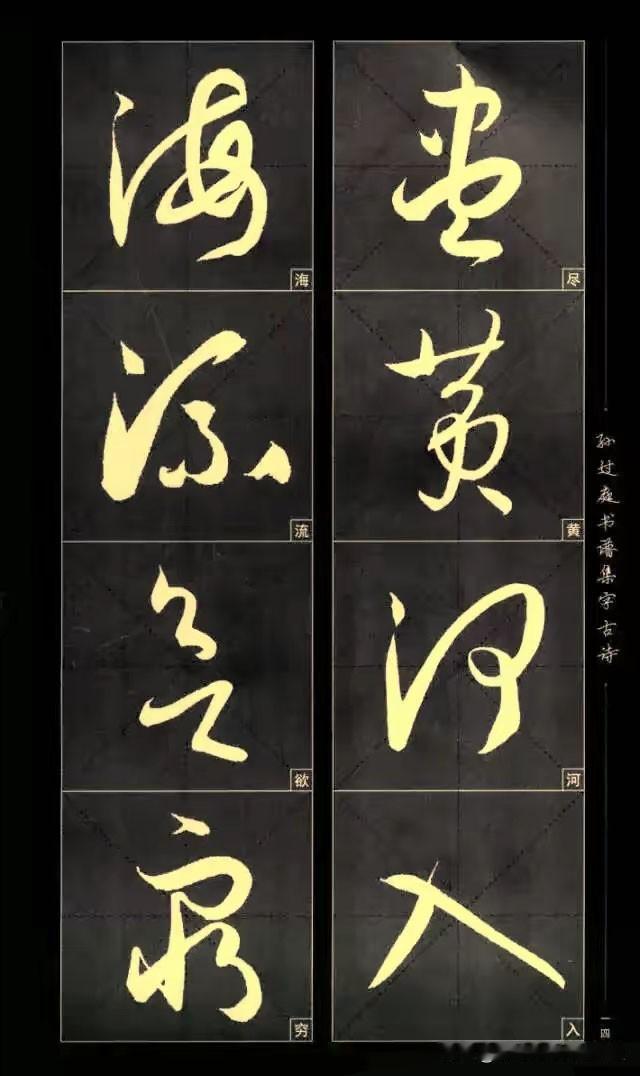 尽黄河入
海流欲穷
尽
黄
河
入
海
流
欲
穷
孙过庭书谱集字古诗
一四